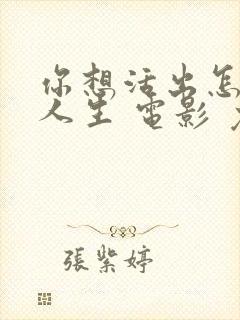 你想活出怎
人生 電影
張紫婷